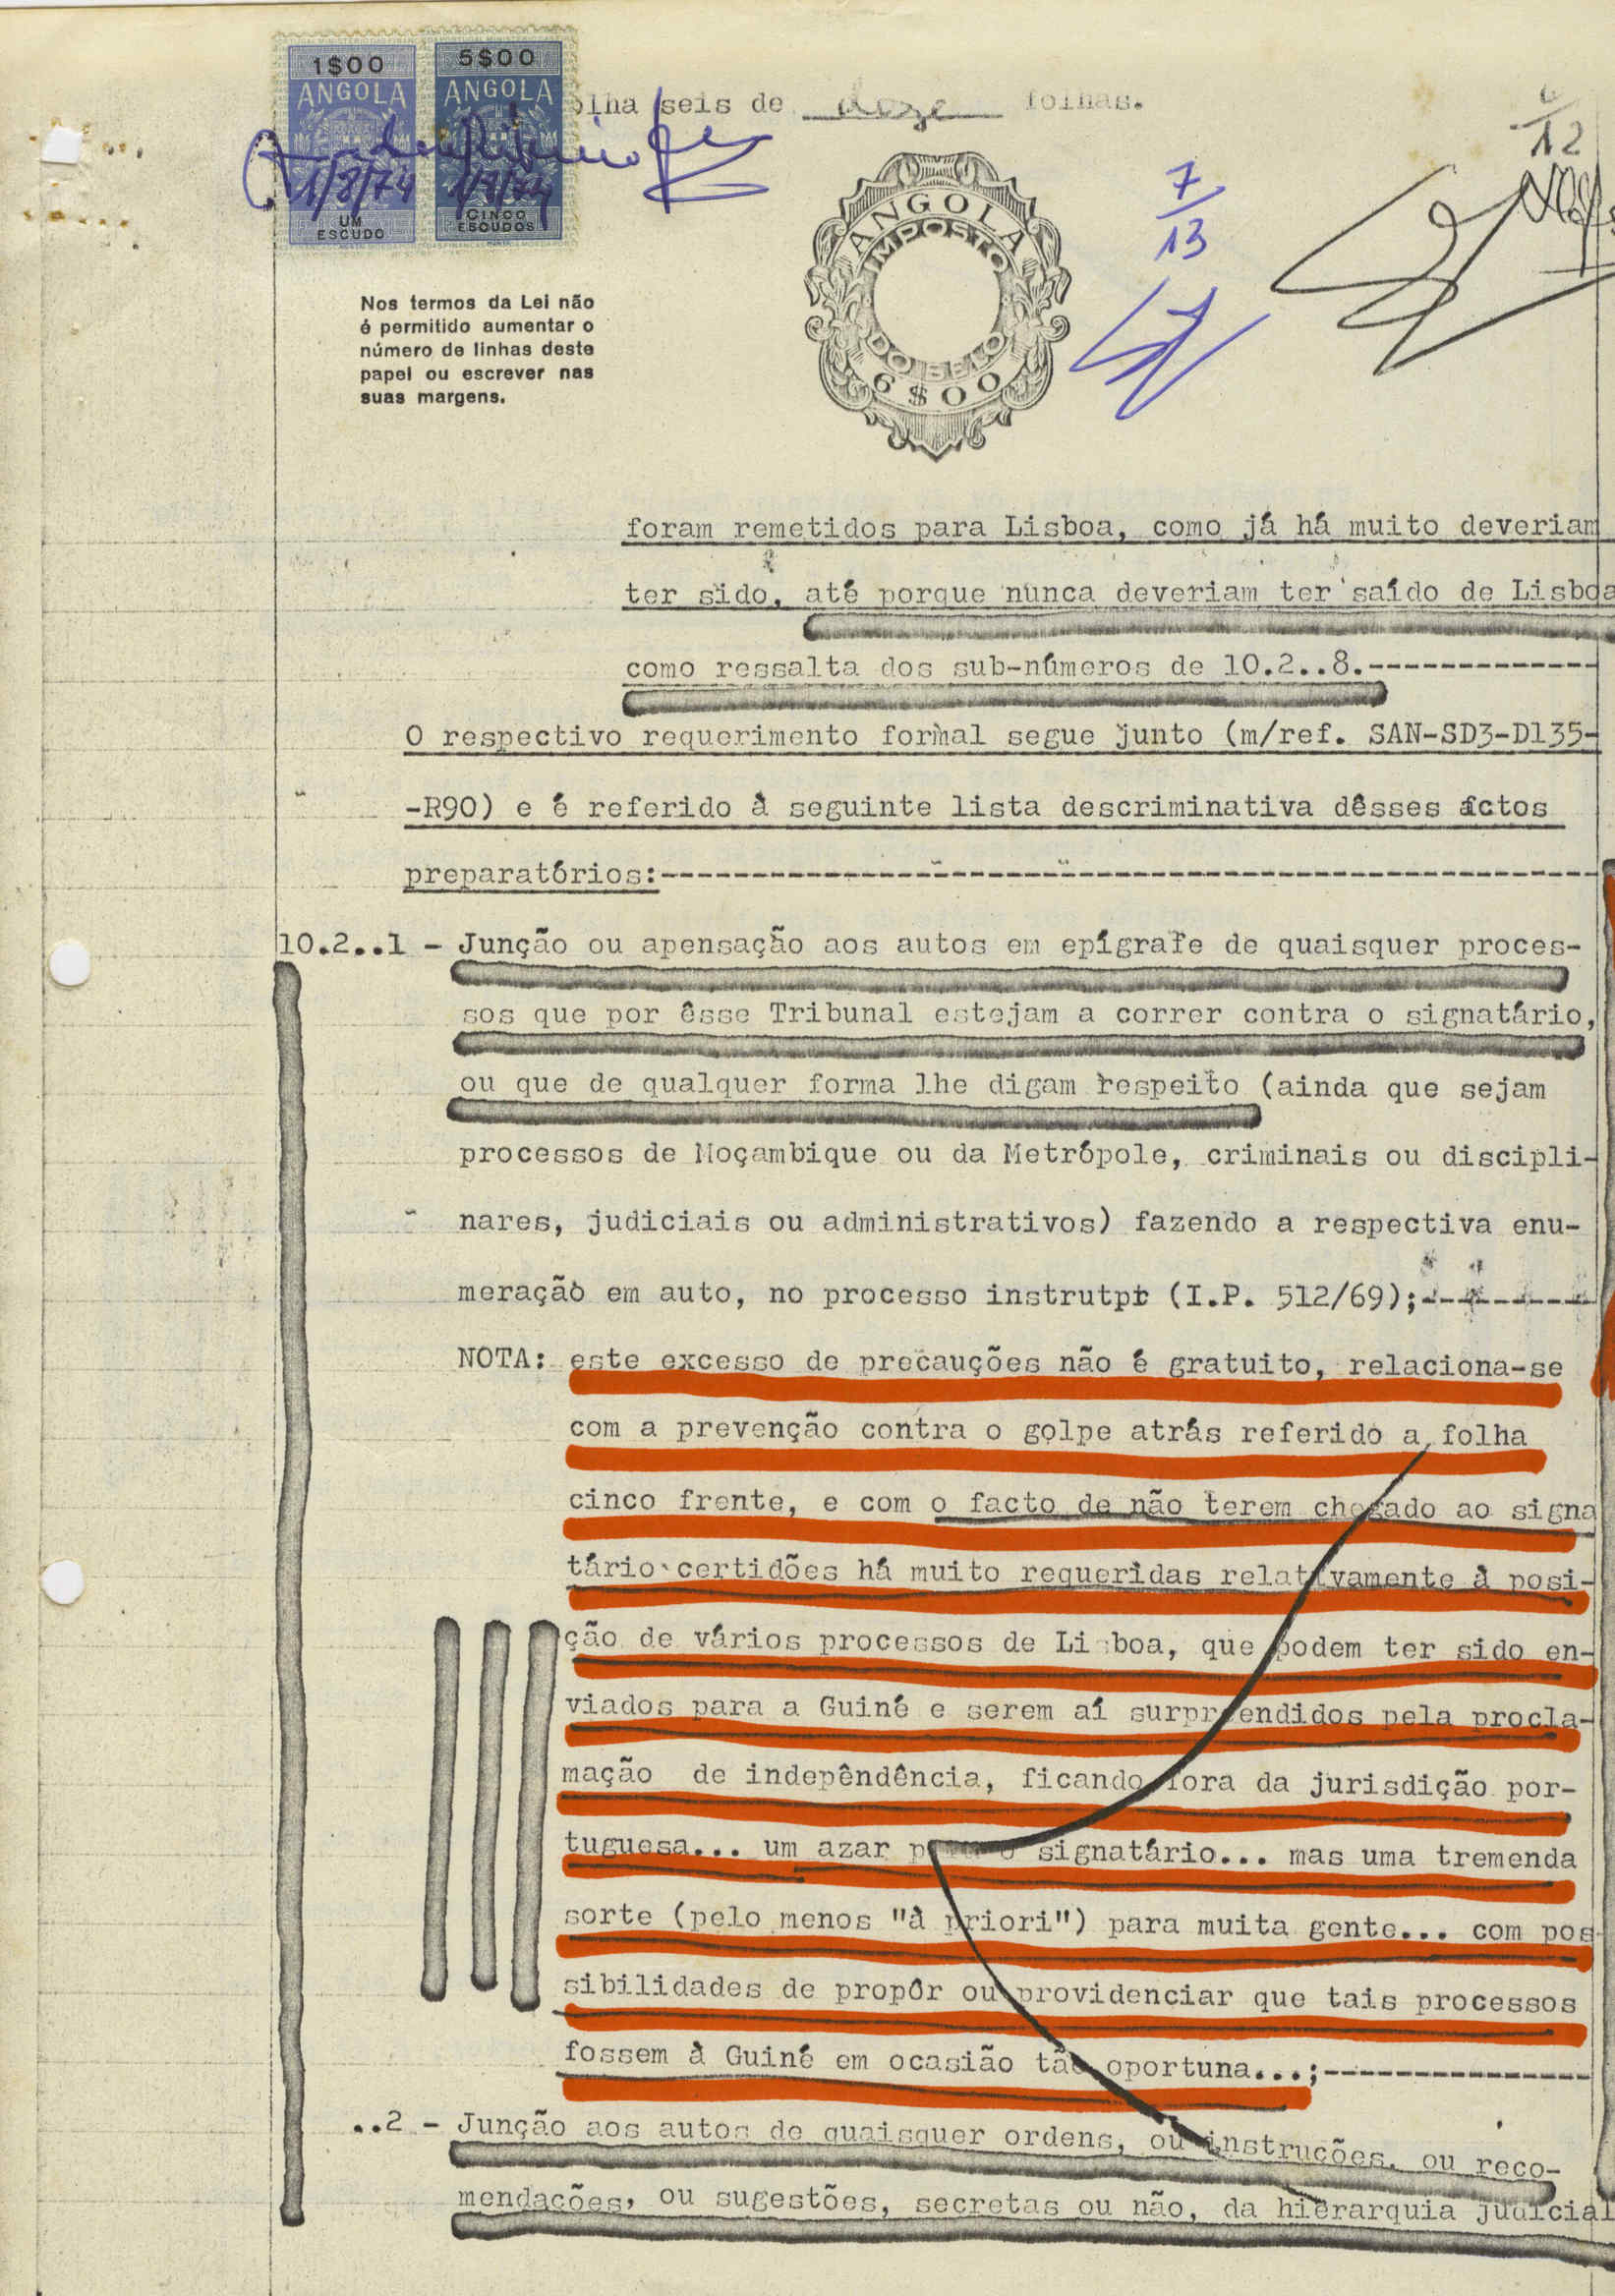 1$00
ANGOLA
1/8/74
UM
ESCUDO
5$00
ANGOLA
1/8/74
CINCO
ESCUDOS
olha seis de doze folhas.
6/12
7/13
ANGOLA
IMPOSTO
DO SELO
6$00
Nos termos da Lei não
é permitido aumentar o
número de linhas deste
papel ou escrever nas
suas margens.
foram remetidos para Lisboa, como já há muito deveriam
ter sido, até porque nunca deveriam ter saído de Lisboa
como ressalta dos sub-números de 10.2..8.-------------
O respectivo requerimento formal segue junto (m/ref. SAN-SD3-D135-
-R90) e é referido à seguinte lista descriminativa dêsses actos
preparatórios:----------------------------------------------------
10.2..1 - Junção ou apensação aos autos em epígrafe de quaisquer proces-
sos que por êsse Tribunal estejam a correr contra o signatário,
ou que de qualquer forma lhe digam respeito (ainda que sejam
processos de Moçambique ou da Metrópole, criminais ou discipli-
nares, judiciais ou administrativos) fazendo a respectiva enu-
meração em auto, no processo instrutpr (I.P. 512/69);----------
NOTA: este excesso de precauções não é gratuito, relaciona-se
com a prevenção contra o golpe atrás referido a folha
cinco frente, e com o facto de não terem chegado ao signa
tário certidões há muito requeridas relativamente à posi-
ção de vários processos de Lisboa, que podem ter sido en-
viados para a Guiné e serem aí surpreendidos pela procla-
mação de indepêndência, ficando fora da jurisdição por-
tuguesa... um azar para o signatário... mas uma tremenda
sorte (pelo menos "à priori") para muita gente... com pos
sibilidades de propôr ou providenciar que tais processos
fossem à Guiné em ocasião tão oportuna...;---------------
..2 - Junção aos autos de quaisquer ordens, ou instruções, ou reco-
mendações, ou sugestões, secretas ou não, da hierarquia judicial